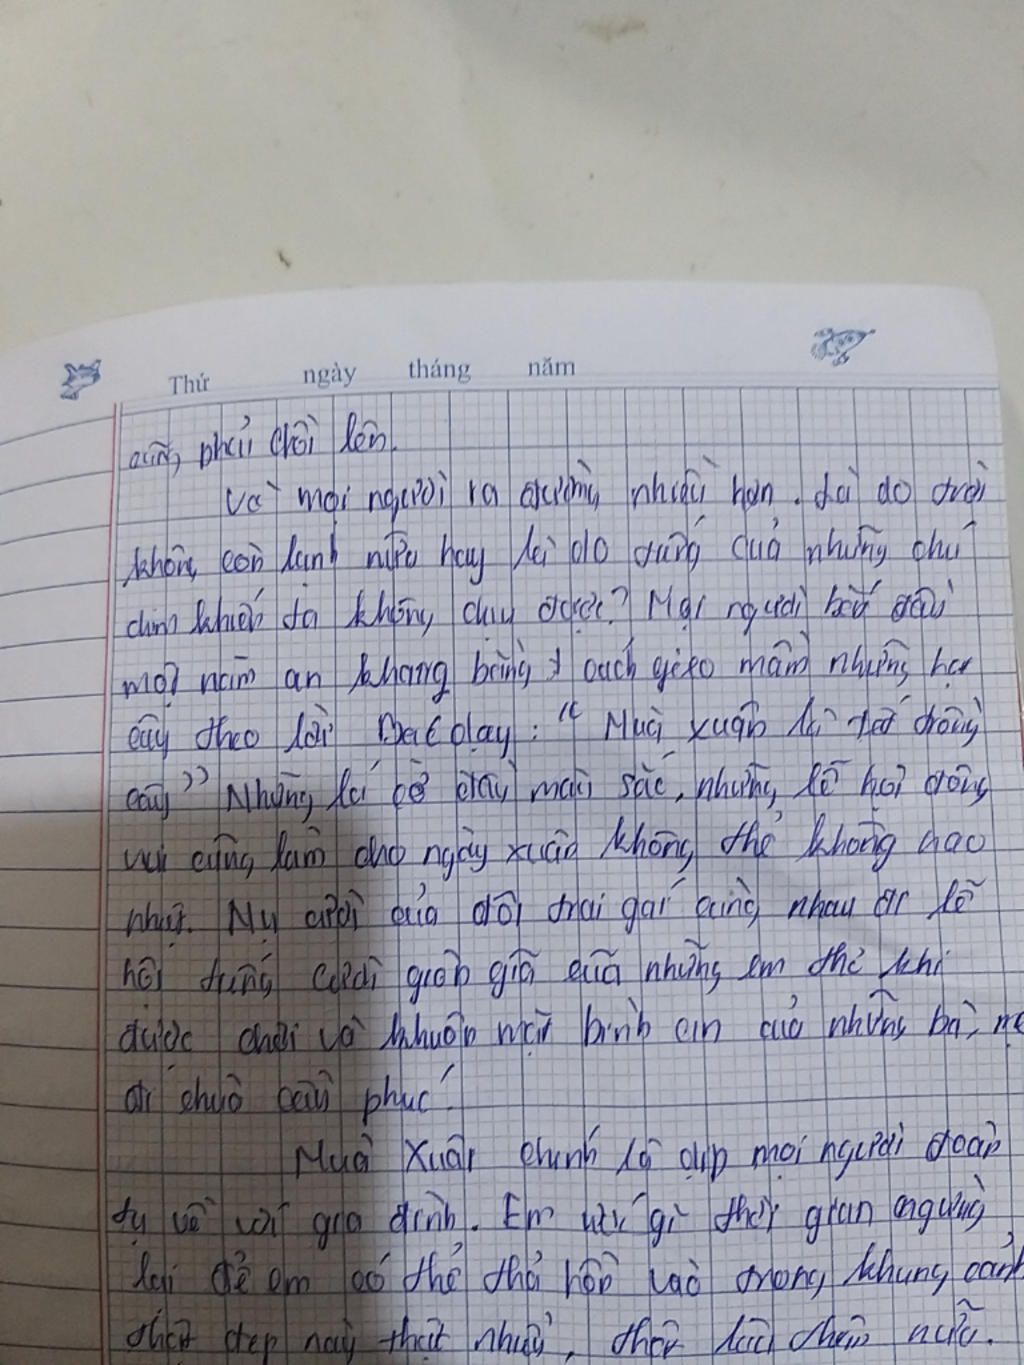 Thứ ngày tháng năm
cũng phải chồi lên.
Và mọi người ra đường nhiều hơn. Là do trời
không còn lạnh nữa hay là do tiếng của những chú
chim khiến ta không chịu được? Mọi người bắt đầu
một năm an khang bằng cách gieo mầm những hạt
cây theo lời Bác dạy: "Mùa xuân là tết trồng
cây" Những lá cờ đầy màu sắc, những lễ hội đông
vui cũng làm cho ngày xuân không thể không nao
nhứt. Nụ cười của đôi trai gái cùng nhau đi lễ
hội, tiếng cười giòn giã của những em thơ khi
được chơi và khuôn mặt bình an của những bà, mẹ
đi chùa cầu phúc.
Mùa Xuân chính là dịp mọi người đoàn
tụ về với gia đình. Em ước gì thời gian ngừng
lại để em có thể thả hồn vào trong khung cảnh
thật đẹp này thật nhiều, thật lâu thêm nữa.